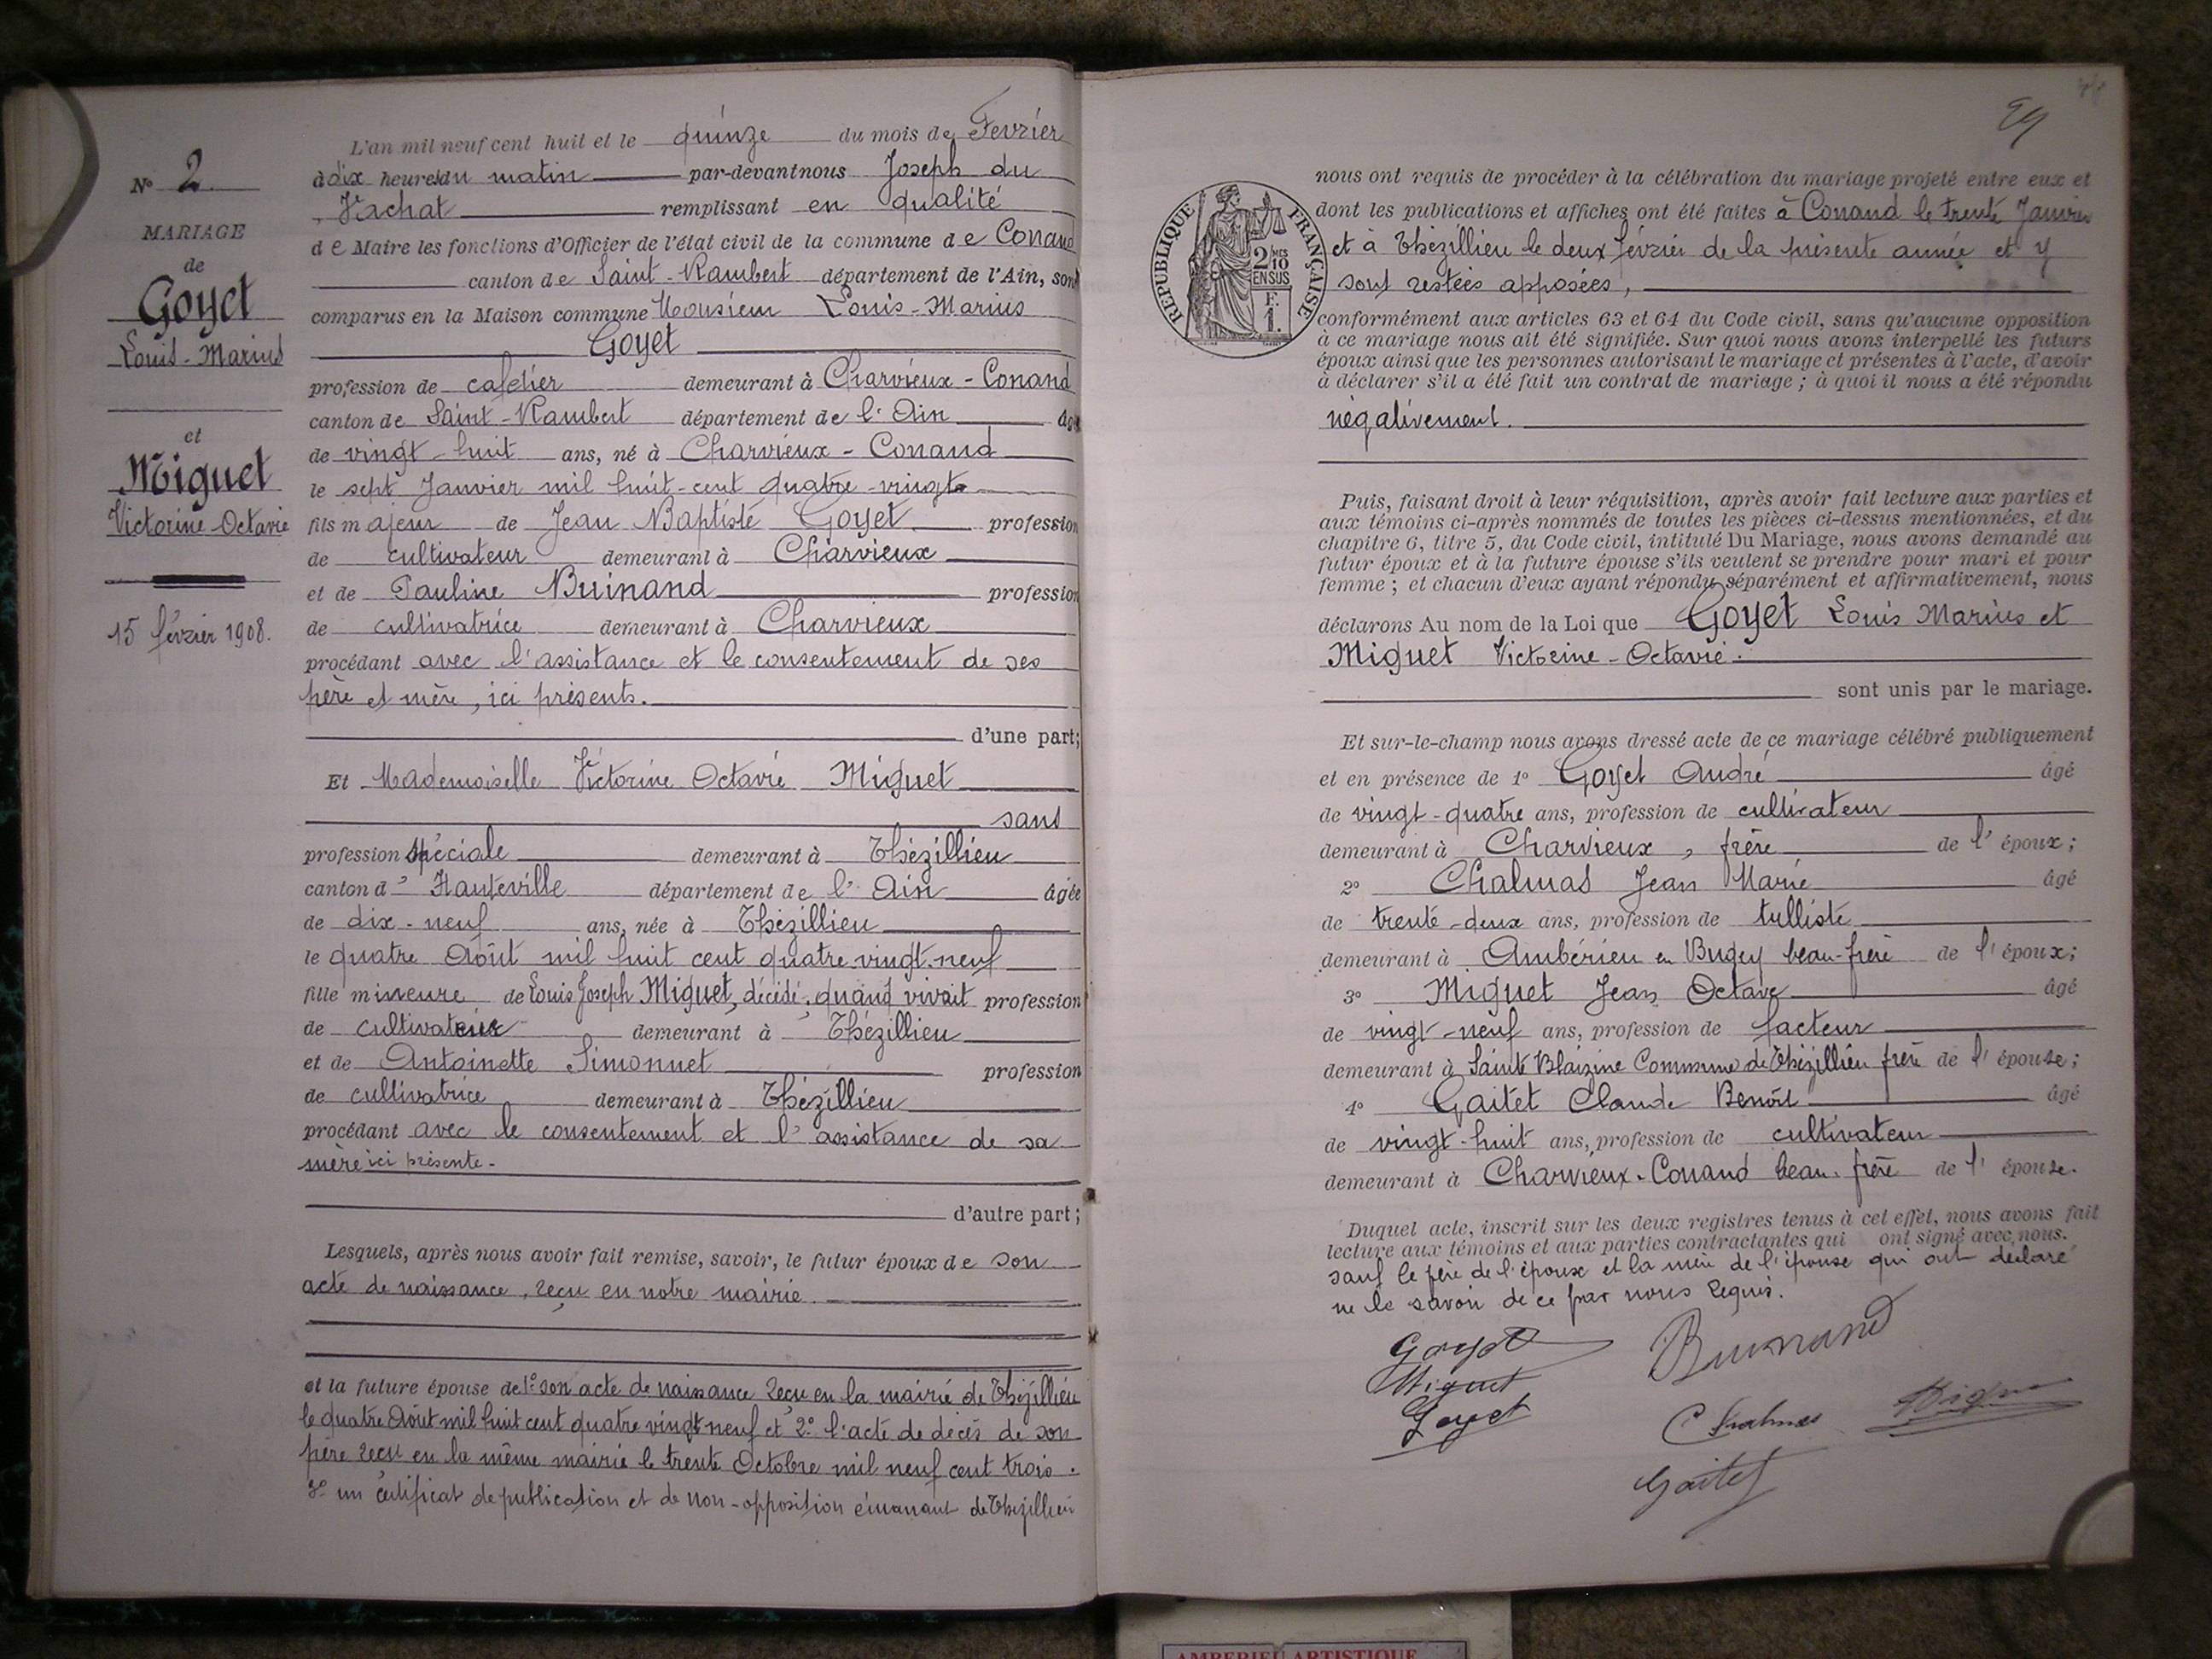 N° 2
MARIAGE
de
Goyet
Louis-Marius
et
Miguet
Victorine-Octavie
15 février 1908.
L'an mil neuf cent huit et le quinze du mois de Fevrier
à dix heures du matin par-devant nous Joseph du
Vachat remplissant en qualité
de Maire les fonctions d'Officier de l'état civil de la commune de Conand
canton de Saint-Rambert département de l'Ain, sont
comparus en la Maison commune Monsieur Louis-Marius
Goyet
profession de cafetier demeurant à Charvieux-Conand
canton de Saint-Rambert département de l'Ain âgé
de vingt-huit ans, né à Charvieux-Conand
le sept Janvier mil huit-cent quatre-vingt
fils majeur de Jean Baptiste Goyet profession
de cultivateur demeurant à Charvieux
et de Pauline Buinand profession
de cultivatrice demeurant à Charvieux
procédant avec l'assistance et le consentement de ses
père et mère, ici présents.
d'une part;
Et Mademoiselle Victorine Octavie Miguet
sans
profession spéciale demeurant à Thézillieu
canton d'Hauteville département de l'Ain âgée
de dix-neuf ans, née à Thézillieu
le quatre Août mil huit cent quatre-vingt-neuf
fille mineure de Louis Joseph Miguet, décédé, quand vivait profession
de cultivateur demeurant à Thézillieu
et de Antoinette Simonnet profession
de cultivatrice demeurant à Thézillieu
procédant avec le consentement et l'assistance de sa
mère ici présente.
d'autre part;
Lesquels, après nous avoir fait remise, savoir, le futur époux de son
acte de naissance, reçu en notre mairie.
et la future épouse de 1° son acte de naissance reçu en la mairie de Thézillieu
le quatre Août mil huit cent quatre vingt neuf et 2° l'acte de décès de son
père reçu en la même mairie le trente Octobre mil neuf cent trois.
3° un certificat de publication et de non-opposition émanant de Thézillieu
29
RÉPUBLIQUE FRANÇAISE
2 MES
10
EN SUS
F.
1.
nous ont requis de procéder à la célébration du mariage projeté entre eux et
dont les publications et affiches ont été faites à Conand le trente Janvier
et à Thézillieu le deux février de la présente année et y
sont restées apposées,
conformément aux articles 63 et 64 du Code civil, sans qu'aucune opposition
à ce mariage nous ait été signifiée. Sur quoi nous avons interpellé les futurs
époux ainsi que les personnes autorisant le mariage et présentes à l'acte, d'avoir
à déclarer s'il a été fait un contrat de mariage; à quoi il nous a été répondu
négativement.
Puis, faisant droit à leur réquisition, après avoir fait lecture aux parties et
aux témoins ci-après nommés de toutes les pièces ci-dessus mentionnées, et du
chapitre 6, titre 5, du Code civil, intitulé Du Mariage, nous avons demandé au
futur époux et à la future épouse s'ils veulent se prendre pour mari et pour
femme; et chacun d'eux ayant répondu séparément et affirmativement, nous
déclarons Au nom de la Loi que Goyet Louis Marius et
Miguet Victorine-Octavie.
sont unis par le mariage.
Et sur-le-champ nous avons dressé acte de ce mariage célébré publiquement
et en présence de 1° Goyet André âgé
de vingt-quatre ans, profession de cultivateur
demeurant à Charvieux, frère de l'époux;
2° Chalmas Jean Marie âgé
de trente-deux ans, profession de tulliste
demeurant à Ambérieu en Bugey beau-frère de l'époux;
3° Miguet Jean Octave âgé
de vingt-neuf ans, profession de facteur
demeurant à Sainte Blaizine Commune de Thézillieu frère de l'épouse;
4° Gaitet Claude Benoit âgé
de vingt-huit ans, profession de cultivateur
demeurant à Charvieux-Conand beau-frère de l'épouse.
Duquel acte, inscrit sur les deux registres tenus à cet effet, nous avons fait
lecture aux témoins et aux parties contractantes qui ont signé avec nous.
sauf le père de l'époux et la mère de l'épouse qui ont déclaré
ne le savoir de ce par nous requis.
Goyet Buinand
Miguet
Goyet Chalmas Miguet
Gaitet
AMBERIEU ARTISTIQUE